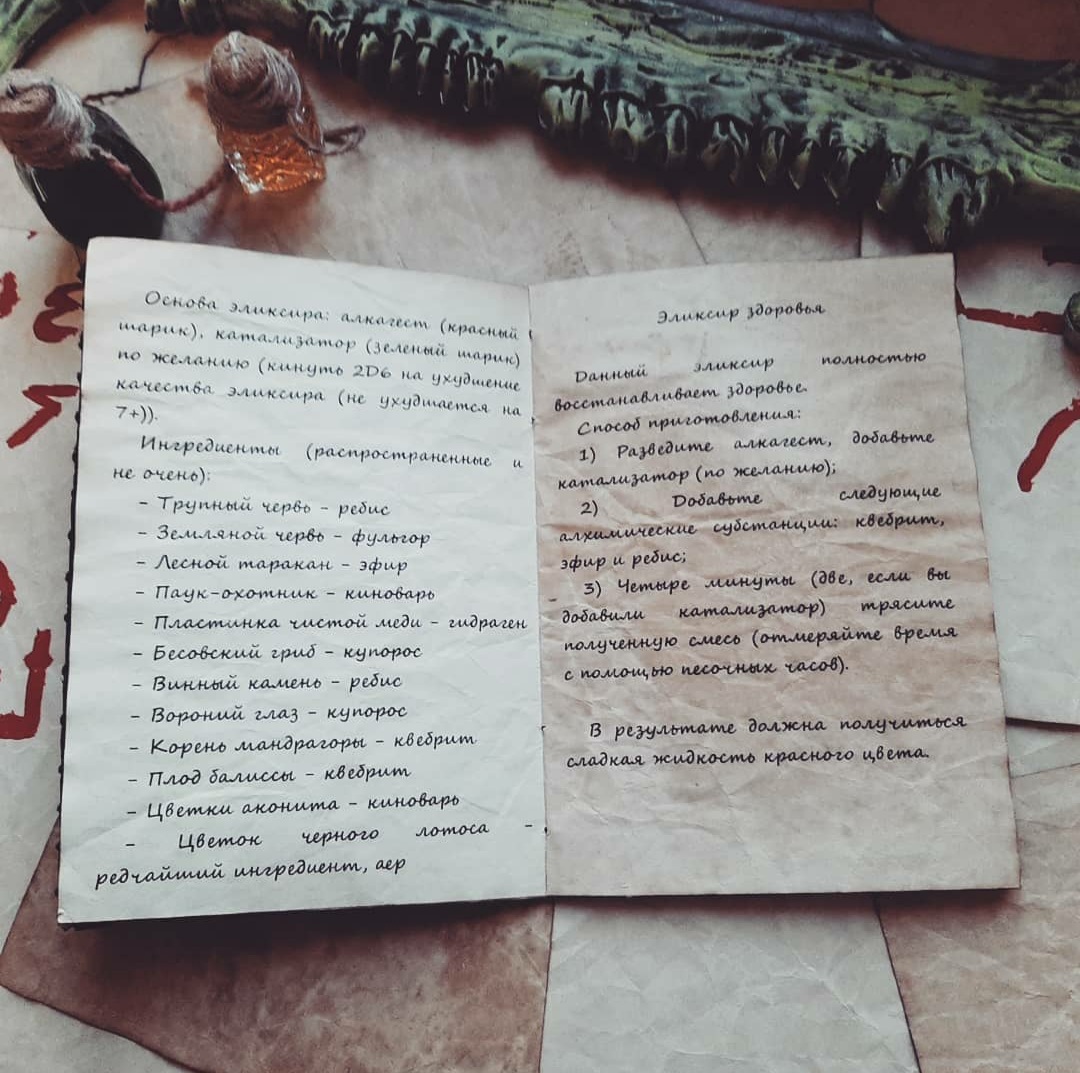 Основа эликсира: алкагест (красный
шарик), катализатор (зеленый шарик)
по желанию (кинуть 2D6 на ухудшение
качества эликсира (не ухудшается на
7+)).
Ингредиенты (распространенные и
не очень):
- Трупный червь - ребис
- Земляной червь - фульгор
- Лесной таракан - эфир
- Паук-охотник - киноварь
- Пластинка чистой меди - гидраген
- Бесовский гриб - купорос
- Винный камень - ребис
- Вороний глаз - купорос
- Корень мандрагоры - квебрит
- Плод балиссы - квебрит
- Цветки аконита - киноварь
- Цветок черного лотоса -
редчайший ингредиент, аер
Эликсир здоровья
Данный эликсир полностью
восстанавливает здоровье.
Способ приготовления:
1) Разведите алкагест, добавьте
катализатор (по желанию);
2) Добавьте следующие
алхимические субстанции: квебрит,
эфир и ребис;
3) Четыре минуты (две, если вы
добавили катализатор) трясите
полученную смесь (отмеряйте время
с помощью песочных часов).
В результате должна получиться
сладкая жидкость красного цвета.